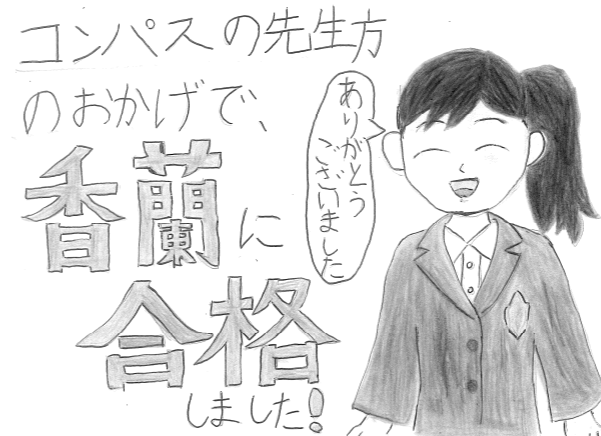 コンパスの先生方
のおかげで、
香蘭に
合格
しました!
ありがとう
ございました